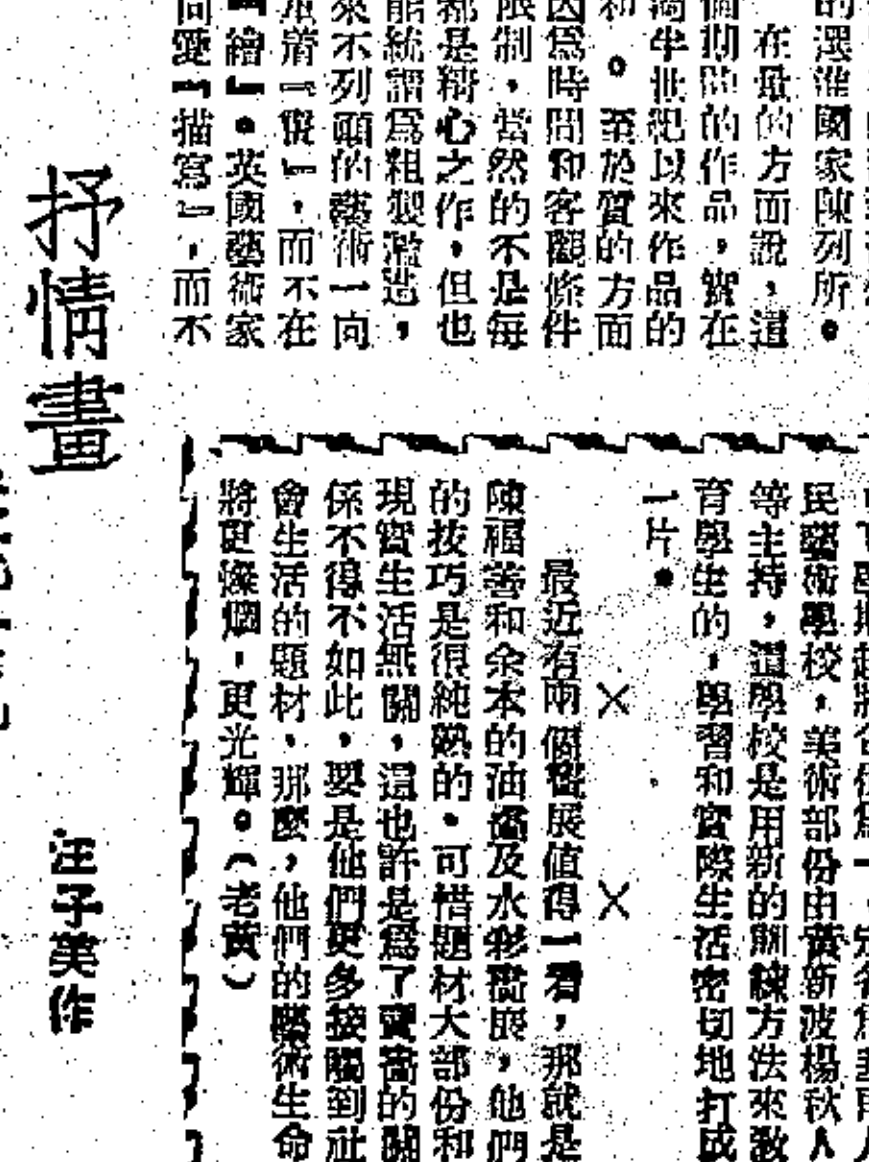 的深淮國家陳列所。
在量的方面說，這
個期間的作品，實在
半世紀以來作品的
和。至於質的方面
因爲時間和客觀條件
限制，當然的不是每
都是精心之作，但也
能統謂爲粗製濫造，
來不列顛的藝術一向
着『　』，而不在
『繪』。英國藝術家
愛『描寫』，而不
抒情畫
汪子美作
民藝術學校，美術部份由黃新波楊秋人
等主持，這學校是用新的訓練方法來敎
育學生的，學習和實際生活密切地打成
一片。
×　×
最近有兩個畫展値得一看，那就是
陳福善和余本的油畫及水彩畫展，他們
的技巧是很純熟的。可惜題材大部份和
現實生活無關，這也許是爲了賣畫的關
係不得不如此，要是他們更多接觸到社
會生活的題材，那麼，他們的藝術生命
將更燦爛，更光輝。（老黃）